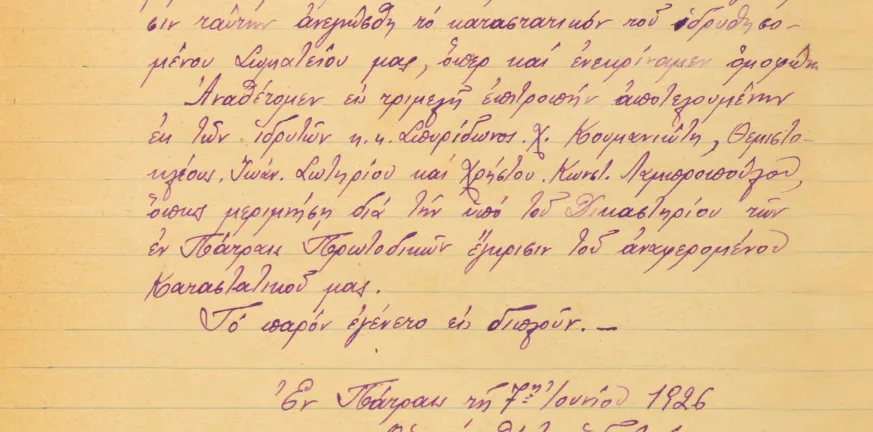 σιν ταύτην ἀνεγνώσθη τό καταστατικόν τοῦ ἱδρυθησο-
μένου Σωματείου μας, ὅπερ καί ἐνεκρίναμεν ὁμοφώνως
Ἀναθέτομεν εἰς τριμελῆ ἐπιτροπήν ἀποτελουμένην
ἐκ τῶν ἱδρυτῶν κ.κ. Σπυρίδωνος. Χ. Κουμανιώτη, Θεμιστο-
κλέους. Ἰωάν. Σωτηρίου καί Χρήστου. Κωνστ. Λαμπροπούλου,
ὅπως μεριμνήσῃ διά τήν ὑπό τοῦ Δικαστηρίου τῶν
ἐν Πάτραις Πρωτοδικῶν ἔγκρισιν τοῦ ἀναφερομένου
Καταστατικοῦ μας.
Τό παρόν ἐγένετο εἰς διπλοῦν. —
Ἐν Πάτραις τῇ 7ῃ Ἰουνίου 1926